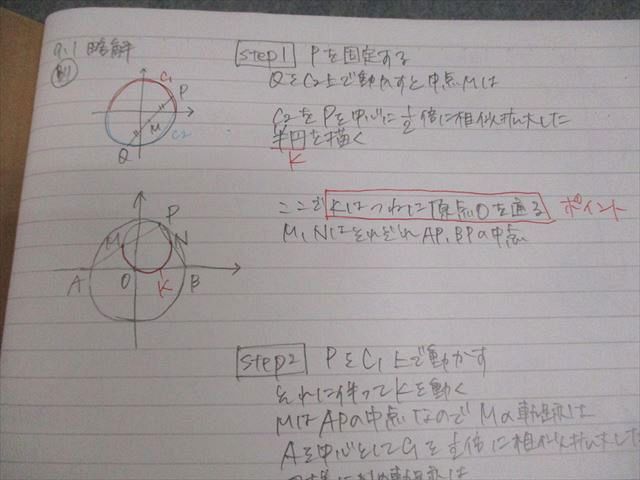 9.1 略解
(B7)
C1
P
M
C2
Q
step1 Pを固定する
QをC2上で動かすと中点Mは
C2をPを中心に1/2倍に相似拡大した
半円を描く
K
ここでKはつねに原点Oを通る ポイント
M,NはそれぞれAP,BPの中点
P
M N
A O K B
step2 PをC1上で動かす
それに伴ってKを動く
MはAPの中点なのでMの軌跡は
Aを中心としてC1を1/2倍に相似拡大した
軌跡は